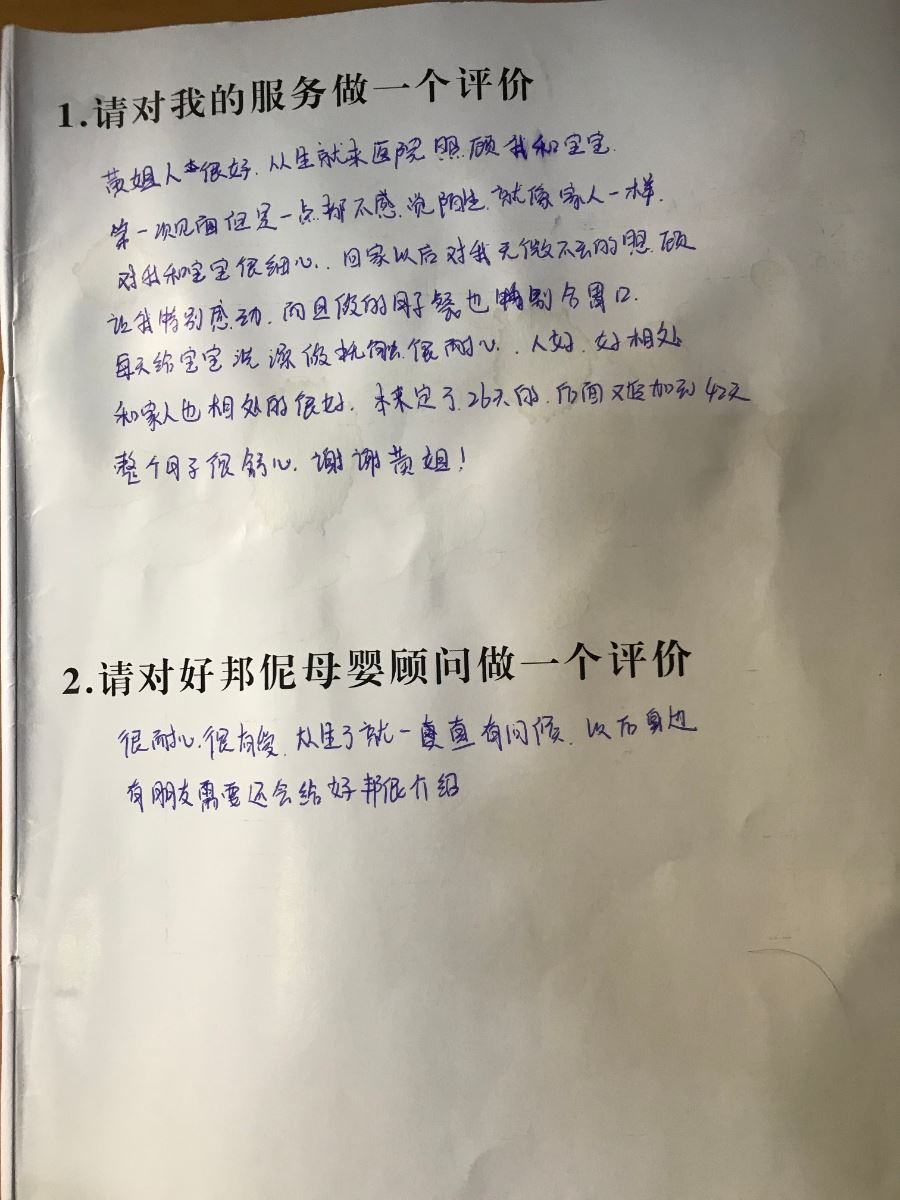 1.请对我的服务做一个评价
黄姐人很好.从生就来医院照顾我和宝宝.
第一次见面但是一点都不感说陌生.就像家人一样.
对我和宝宝很细心.. 回家以后对我无微不至的照顾
让我特别感动.而且做的月子餐也特别合胃口.
每天给宝宝洗澡做抚触很耐心..人好.好相处
和家人也相处的很好.本来定了26天的.后面又加到42天
整个月子很舒心.谢谢黄姐!
2.请对好邦伲母婴顾问做一个评价
很耐心.很有爱.从生了就一直有问候.以后身边
有朋友需要还会给好邦伲介绍